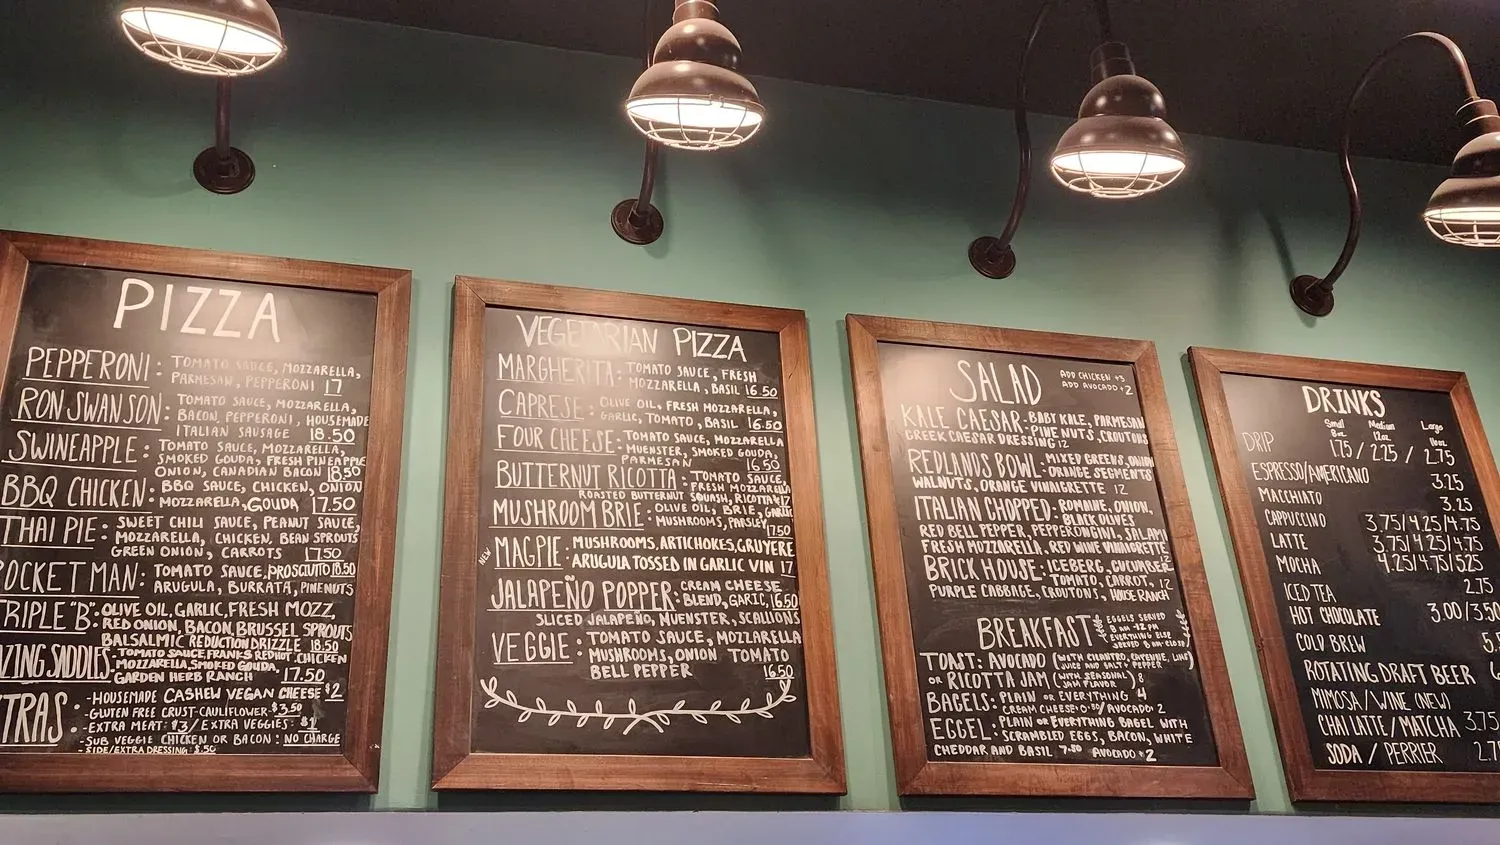 PIZZA
PEPPERONI: TOMATO SAUCE, MOZZARELLA,
PARMESAN, PEPPERONI 17
RON SWANSON: TOMATO SAUCE, MOZZARELLA,
BACON, PEPPERONI, HOUSEMADE
ITALIAN SAUSAGE 18.50
SWINEAPPLE: TOMATO SAUCE, MOZZARELLA,
SMOKED GOUDA, FRESH PINEAPPLE
ONION, CANADIAN BACON 18.50
BBQ CHICKEN: BBQ SAUCE, CHICKEN, ONION
MOZZARELLA, GOUDA 17.50
THAI PIE: SWEET CHILI SAUCE, PEANUT SAUCE,
MOZZARELLA, CHICKEN, BEAN SPROUTS
GREEN ONION, CARROTS 17.50
OCKET MAN: TOMATO SAUCE, PROSCIUTTO 18.50
ARUGULA, BURRATA, PINENUTS
TRIPLE "B": OLIVE OIL, GARLIC, FRESH MOZZ,
RED ONION, BACON, BRUSSEL SPROUTS
BALSALMIC REDUCTION DRIZZLE 18.50
ZING SADDLES: TOMATO SAUCE, FRANKS REDHOT, CHICKEN
MOZZARELLA, SMOKED GOUDA,
GARDEN HERB RANCH 17.50
TRAS: -HOUSEMADE CASHEW VEGAN CHEESE $2
-GLUTEN FREE CRUST-CAULIFLOWER-$3.50
-EXTRA MEAT: $3/EXTRA VEGGIES: $1
-SUB VEGGIE CHICKEN OR BACON: NO CHARGE
-SIDE/EXTRA DRESSING $.50
VEGETARIAN PIZZA
MARGHERITA: TOMATO SAUCE, FRESH
MOZZARELLA, BASIL 16.50
CAPRESE: OLIVE OIL, FRESH MOZZARELLA,
GARLIC, TOMATO, BASIL 16.50
FOUR CHEESE: TOMATO SAUCE, MOZZARELLA
MUENSTER, SMOKED GOUDA,
PARMESAN 16.50
BUTTERNUT RICOTTA: TOMATO SAUCE,
FRESH MOZZARELLA
ROASTED BUTTERNUT SQUASH, RICOTTA 17
MUSHROOM BRIE: OLIVE OIL, BRIE, GARLIC
MUSHROOMS, PARSLEY 17.50
NEW MAGPIE: MUSHROOMS, ARTICHOKES, GRUYERE
ARUGULA TOSSED IN GARLIC VIN 17
JALAPEÑO POPPER: CREAM CHEESE
BLEND, GARLIC, 16.50
SLICED JALAPEÑO, MUENSTER, SCALLIONS
VEGGIE: TOMATO SAUCE, MOZZARELLA
MUSHROOMS, ONION TOMATO
BELL PEPPER 16.50
SALAD
ADD CHICKEN +3
ADD AVOCADO +2
KALE CAESAR: BABY KALE, PARMESAN
PINE NUTS, CROUTONS
GREEK CAESAR DRESSING 12
REDLANDS BOWL: MIXED GREENS, ONION
ORANGE SEGMENTS
WALNUTS, ORANGE VINAIGRETTE 12
ITALIAN CHOPPED: ROMAINE, ONION,
BLACK OLIVES
RED BELL PEPPER, PEPPERONCINI, SALAMI
FRESH MOZZARELLA, RED WINE VINAIGRETTE
12
BRICK HOUSE: ICEBERG, CUCUMBER
TOMATO, CARROT, 12
PURPLE CABBAGE, CROUTONS, HOUSE RANCH
BREAKFAST
EGGELS SERVED
8 AM - 12 PM
EVERYTHING ELSE
SERVED 8 AM-CLOSE
TOAST: AVOCADO (WITH CILANTRO, CAYENNE, LIME
JUICE AND SALT & PEPPER
OR RICOTTA JAM (WITH SEASONAL) 8
JAM FLAVOR
BAGELS: PLAIN OR EVERYTHING 4
CREAM CHEESE +0.50/AVOCADO 2
EGGEL: PLAIN OR EVERYTHING BAGEL WITH
SCRAMBLED EGGS, BACON, WHITE
CHEDDAR AND BASIL 7.50 AVOCADO +2
DRINKS
Small Medium Large
8oz 12oz 16oz
DRIP 1.75 / 2.25 / 2.75
ESPRESSO/AMERICANO 3.25
MACCHIATO 3.25
CAPPUCCINO 3.75/4.25/4.75
LATTE 3.75/4.25/4.75
MOCHA 4.25/4.75/5.25
ICED TEA 2.75
HOT CHOCOLATE 3.00/3.50
COLD BREW
ROTATING DRAFT BEER 6
MIMOSA/WINE (NEW)
CHAI LATTE/MATCHA 3.75
SODA / PERRIER